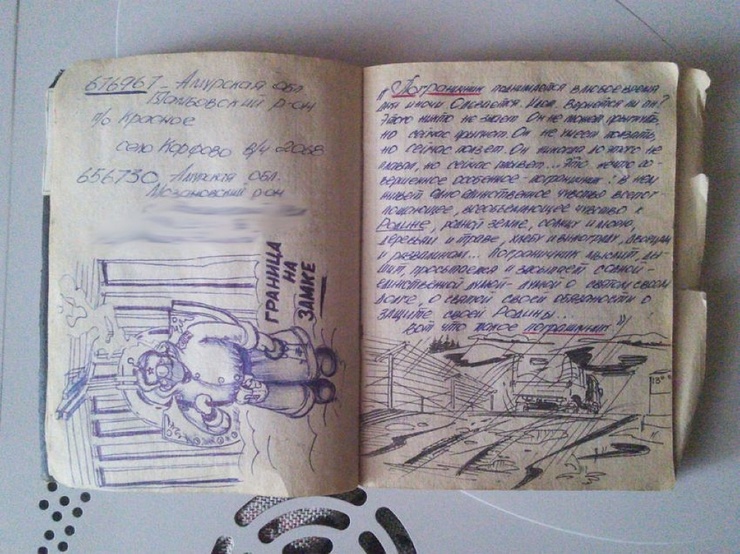 676967 - Амурская обл.
Тамбовский р-он
п/о Красное
село Корфово в/ч 2068
656730, Амурская обл.
Мазановский р-он
ГРАНИЦА
НА
ЗАМКЕ
" Пограничник поднимается в любое время
дня и ночи. Одевается. Ушел. Вернется ли он?
Этого никто не знает. Он не может прыгнуть,
но сейчас прыгнет. Он не умеет ползать,
но сейчас ползет. Он никогда до этого не
плавал, но сейчас плывет... Это нечто со-
вершенное особенное - пограничник: в нем
живет одно единственное чувство всепог-
лощающее, всеобъемлющее чувство к
Родине, родной земле, солнцу и морю,
деревьям и траве, хлебу и винограду, дворцам
и развалинам... Пограничник мыслит, ды-
шит, просыпается и засыпает с одной -
единственной думой - думой о святом своем
долге, о святой своей обязанности о
защите своей Родины...
Вот что такое пограничник "!